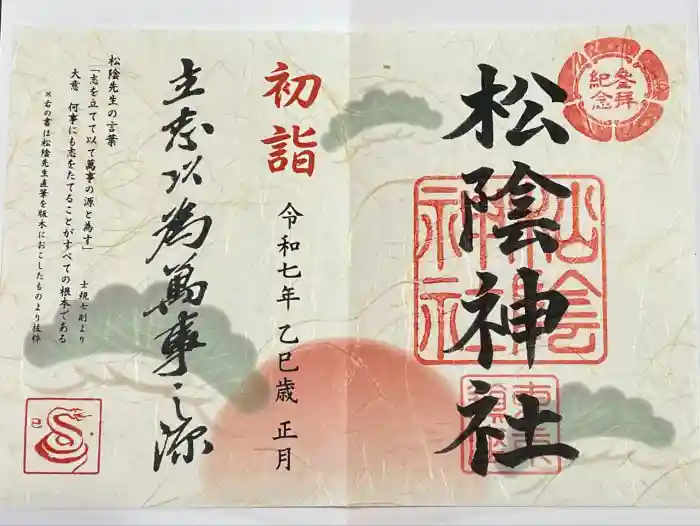 參拝
紀念
松陰神社
松陰
神社
初詣
令和七年 乙巳歳 正月
立志以為萬事之源
松陰先生の言葉
「志を立てて以て萬事の源と為す」
士規七則より
大意 何事にも志をたてることがすべての根本である
※右の書は松陰先生直筆を版木におこしたものより抜粋
巳